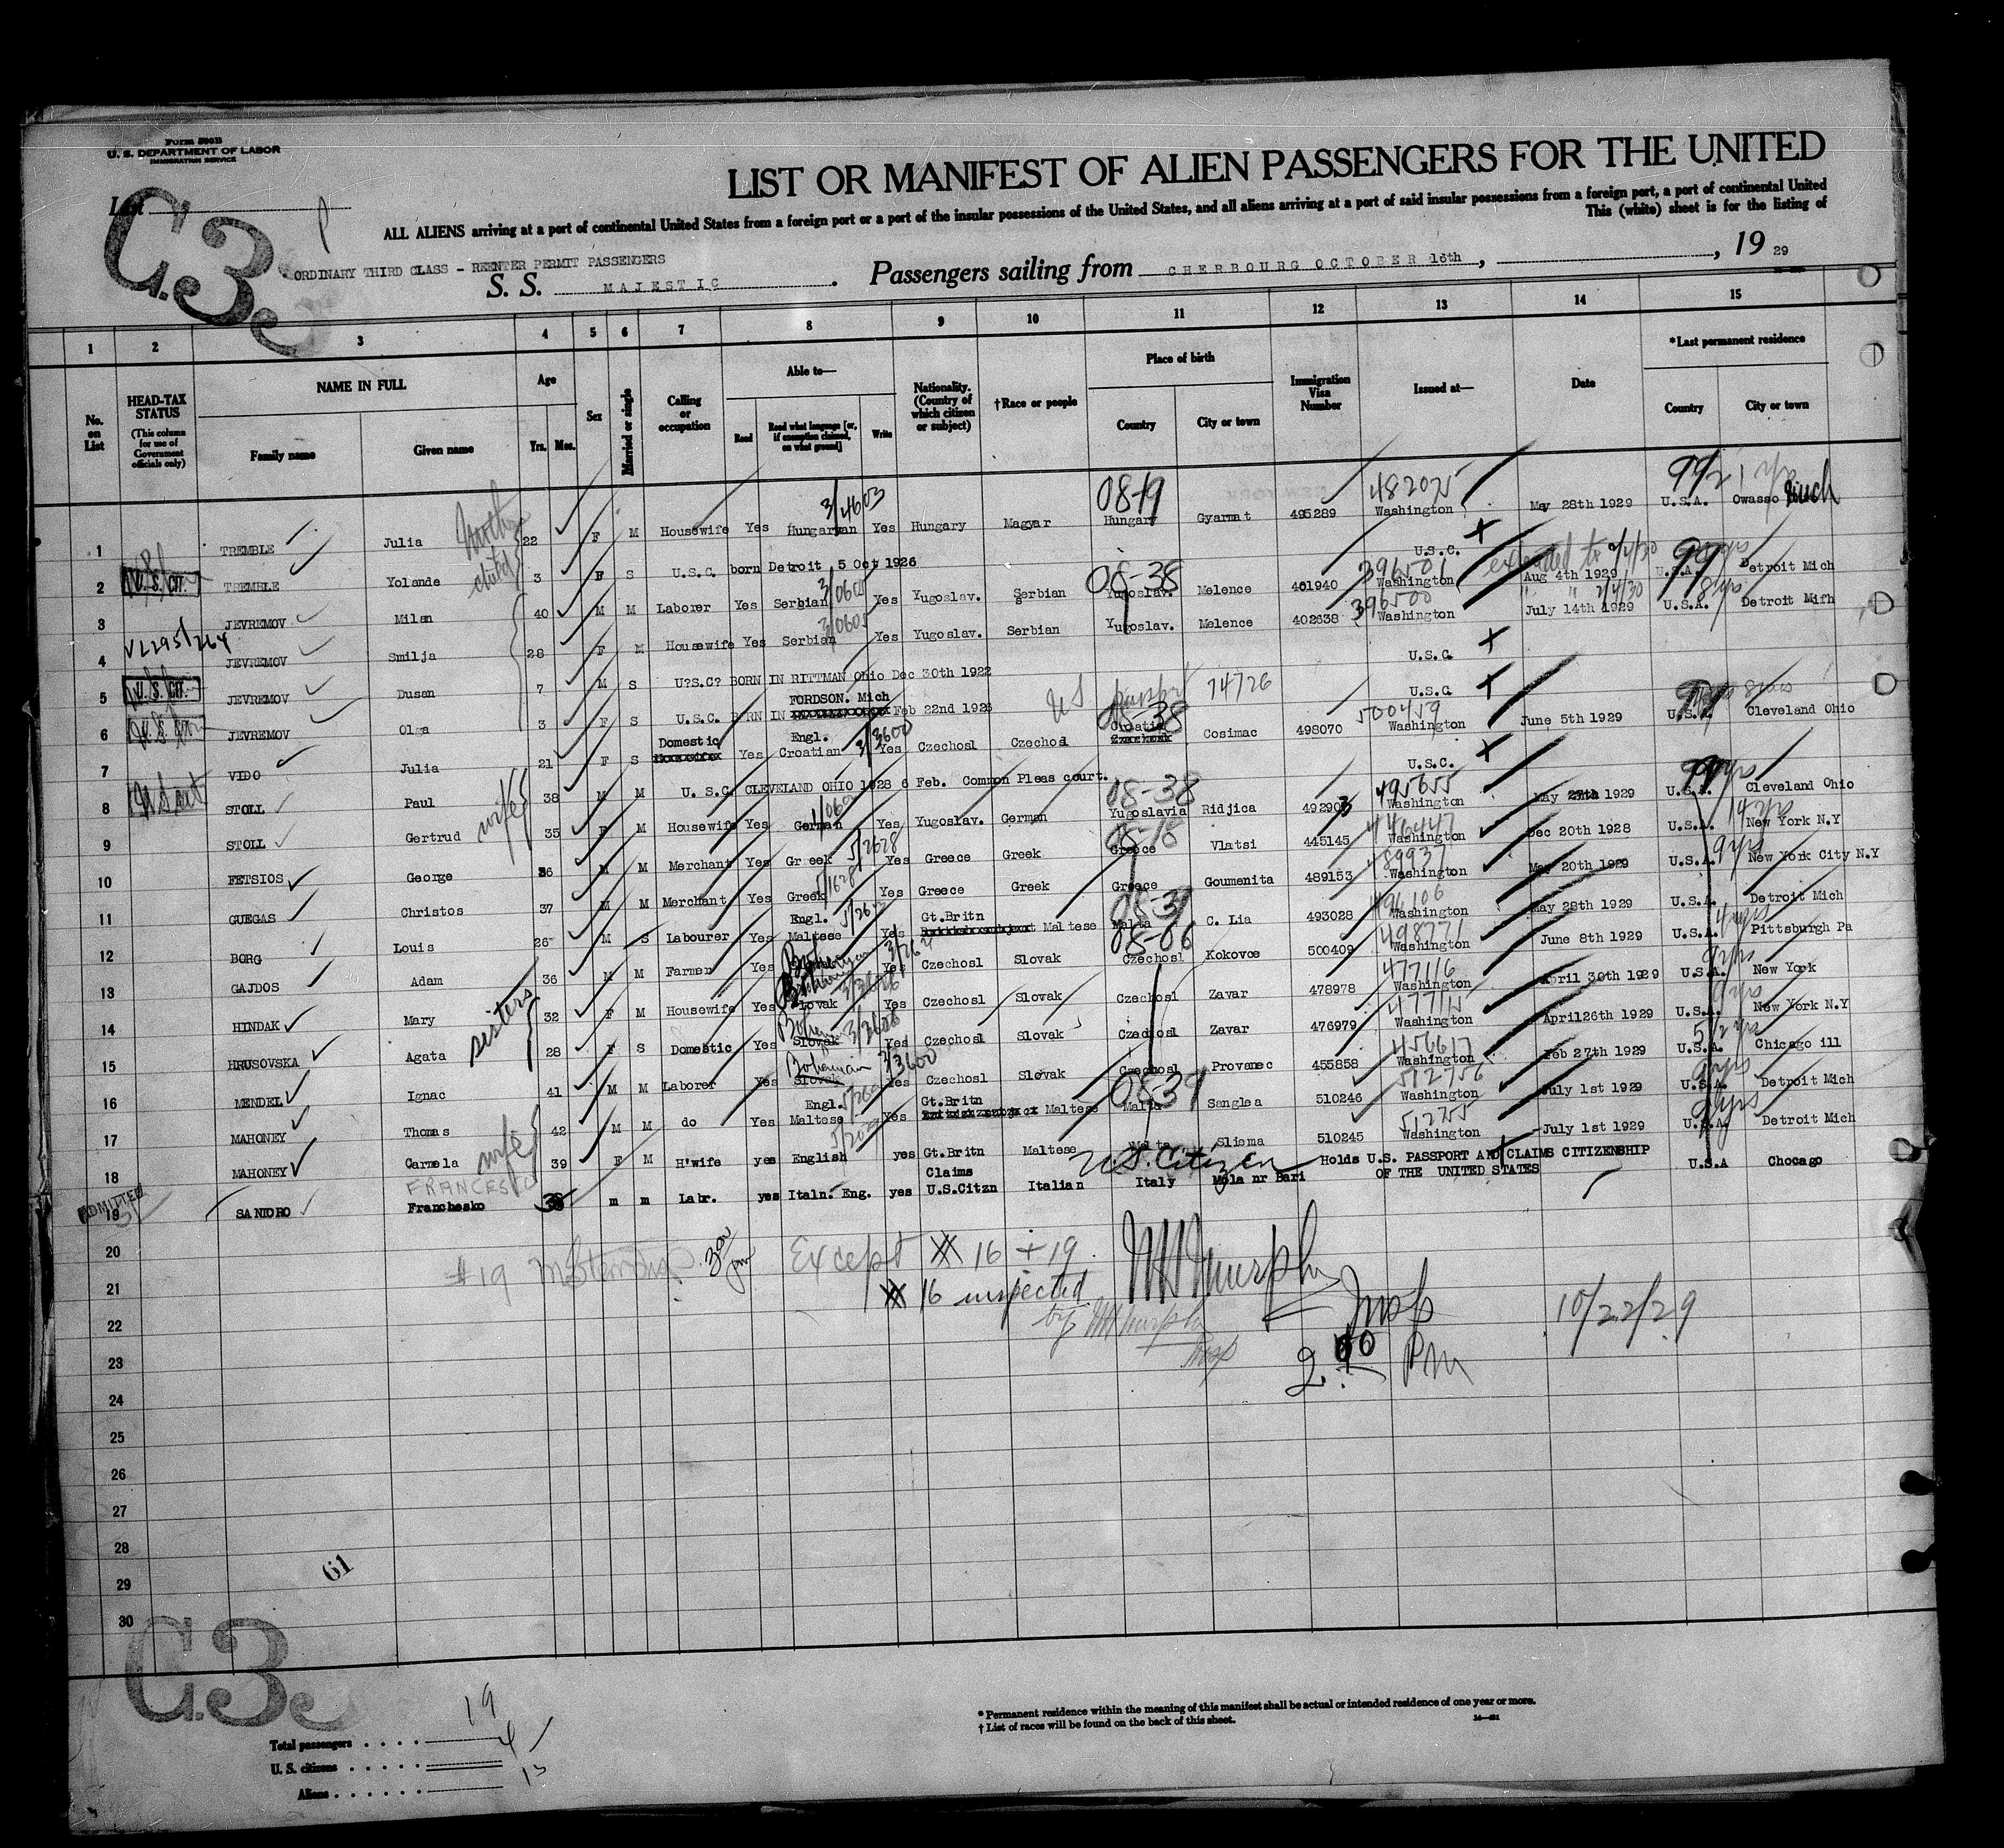 Form 500B
U. S. DEPARTMENT OF LABOR
IMMIGRATION SERVICE
LIST OR MANIFEST OF ALIEN PASSENGERS FOR THE UNITED
List
C.3
ALL ALIENS arriving at a port of continental United States from a foreign port or a port of the insular possessions of the United States, and all aliens arriving at a port of said insular possessions from a foreign port, a port of continental United
This (white) sheet is for the listing of
ORDINARY THIRD CLASS - REENTER PERMIT PASSENGERS
S. S. MAJESTIC. Passengers sailing from CHERBOURG OCTOBER 16th, , 19 29
1 2 3 4 5 6 7 8 9 10 11 12 13 14 15
No. on List
HEAD-TAX STATUS (This column for use of Government officials only)
NAME IN FULL
Family name Given name
Age
Yrs. Mos.
Sex
Married or single
Calling or occupation
Able to—
Read Read what language [or, if exemption claimed, on what ground] Write
Nationality. (Country of which citizen or subject)
†Race or people
Place of birth
Country City or town
Immigration Visa Number
Issued at—
Date
*Last permanent residence
Country City or town
1 TREMBLE Julia 22 F M Housewife Yes Hungaryan Yes Hungary Magyar Hungary Gyarmat 495289 Washington May 28th 1929 U.S.A. Owasso Mich
mother child 3/4603 08-19 482025
2 U. S. CIT. TREMBLE Yolande 3 F S U.S.C. born Detroit 5 Oct 1926 U.S.C.
3 JEVREMOV Milan 40 M M Laborer Yes Serbian Yes Yugoslav. Serbian Yugoslav. Melence 401940 Washington Aug 4th 1929 U.S.A. Detroit Mich
3/0605 08-38 396501 extended to 2/4/30
4 JEVREMOV Smilja 28 F M Housewife Yes Serbian Yes Yugoslav. Serbian Yugoslav. Melence 402638 Washington July 14th 1929 U.S.A. Detroit Mifh
3/0605 396500 " " 2/4/30
5 U. S. CIT. JEVREMOV Dusan 7 M S U?S.C? BORN IN RITTMAN Ohio Dec 30th 1922 U.S.C.
6 JEVREMOV Olga 3 F S U.S.C. BORN IN FORDSON. Mich Feb 22nd 1926 U.S.C.
74726
7 VIDO Julia 21 F S Domestic Yes Engl. Croatian Yes Czechosl Czechosl Croatia Cosimac 498070 Washington June 5th 1929 U.S.A. Cleveland Ohio
3/3600 08-38 500459
8 STOLL Paul 38 M M U. S.C. CLEVELAND OHIO 1928 6 Feb. Common Pleas court. U.S.C.
9 STOLL Gertrud wife 35 F M Housewife Yes German Yes Yugoslav. German Yugoslavia Ridjica 492903 Washington May 1929 U.S.A. Cleveland Ohio
08-38 495655
10 FETSIOS George 36 M M Merchant Yes Greek Yes Greece Greek Greece Vlatsi 445145 Washington Dec 20th 1928 U.S.A. New York N.Y
5/2628 08-18 446447
11 GUEGAS Christos 37 M M Merchant Yes Greek Yes Greece Greek Greece Goumenita 489153 Washington May 20th 1929 U.S.A. New York City N.Y
12 BORG Louis 26 M S Labourer Yes Engl. Maltese Yes Gt.Britn Maltese Malta C. Lia 493028 Washington May 28th 1929 U.S.A. Detroit Mich
08-39 496106
13 GAJDOS Adam 36 M M Farmer Yes Yes Czechosl Slovak Czechosl Kokovce 500409 Washington June 8th 1929 U.S.A. Pittsburgh Pa
08-06 498771
14 HINDAK Mary 32 F M Housewife Yes Slovak Yes Czechosl Slovak Czechosl Zavar 478978 Washington April 30th 1929 U.S.A. New York
sisters 477116
15 HRUSOVSKA Agata 28 F S Domestic Yes Slovak Yes Czechosl Slovak Czechosl Zavar 476979 Washington April26th 1929 U.S.A. New York N.Y
3/2606 477115
16 MENDEL Ignac 41 M M Laborer Yes Slovak Yes Czechosl Slovak Czechosl Provanec 455858 Washington Feb 27th 1929 U.S.A. Chicago ill
Bohemian 3/3600 456617
17 MAHONEY Thomas 42 M M do Yes Engl. Maltese Yes Gt.Britn Maltese Malta Senglea 510246 Washington July 1st 1929 U.S.A. Detroit Mich
08-39 512756
18 MAHONEY Carmela wife 39 F M H'wife yes English yes Gt.Britn Maltese Malta Sliema 510245 Washington July 1st 1929 U.S.A. Detroit Mich
51255
ADMITTED FRANCESCO U.S. Citizen
19 SANTORO Franchesko 38 m m Labr. yes Italn. Eng. yes Claims U.S.Citzn Italian Italy Mola nr Bari Holds U.S. PASSPORT AND CLAIMS CITIZENSHIP OF THE UNITED STATES U.S.A Chocago
20 Except # 16 + 19.
#19
21 # 16 inspected
22 by
Insp
10/22/29
23
2.00 PM
24
25
26
27
28
29
30
61
C.3
Total passengers . . . . 19
U. S. citizens . . . . . 4
Aliens . . . . . . 15
* Permanent residence within the meaning of this manifest shall be actual or intended residence of one year or more.
† List of races will be found on the back of this sheet.